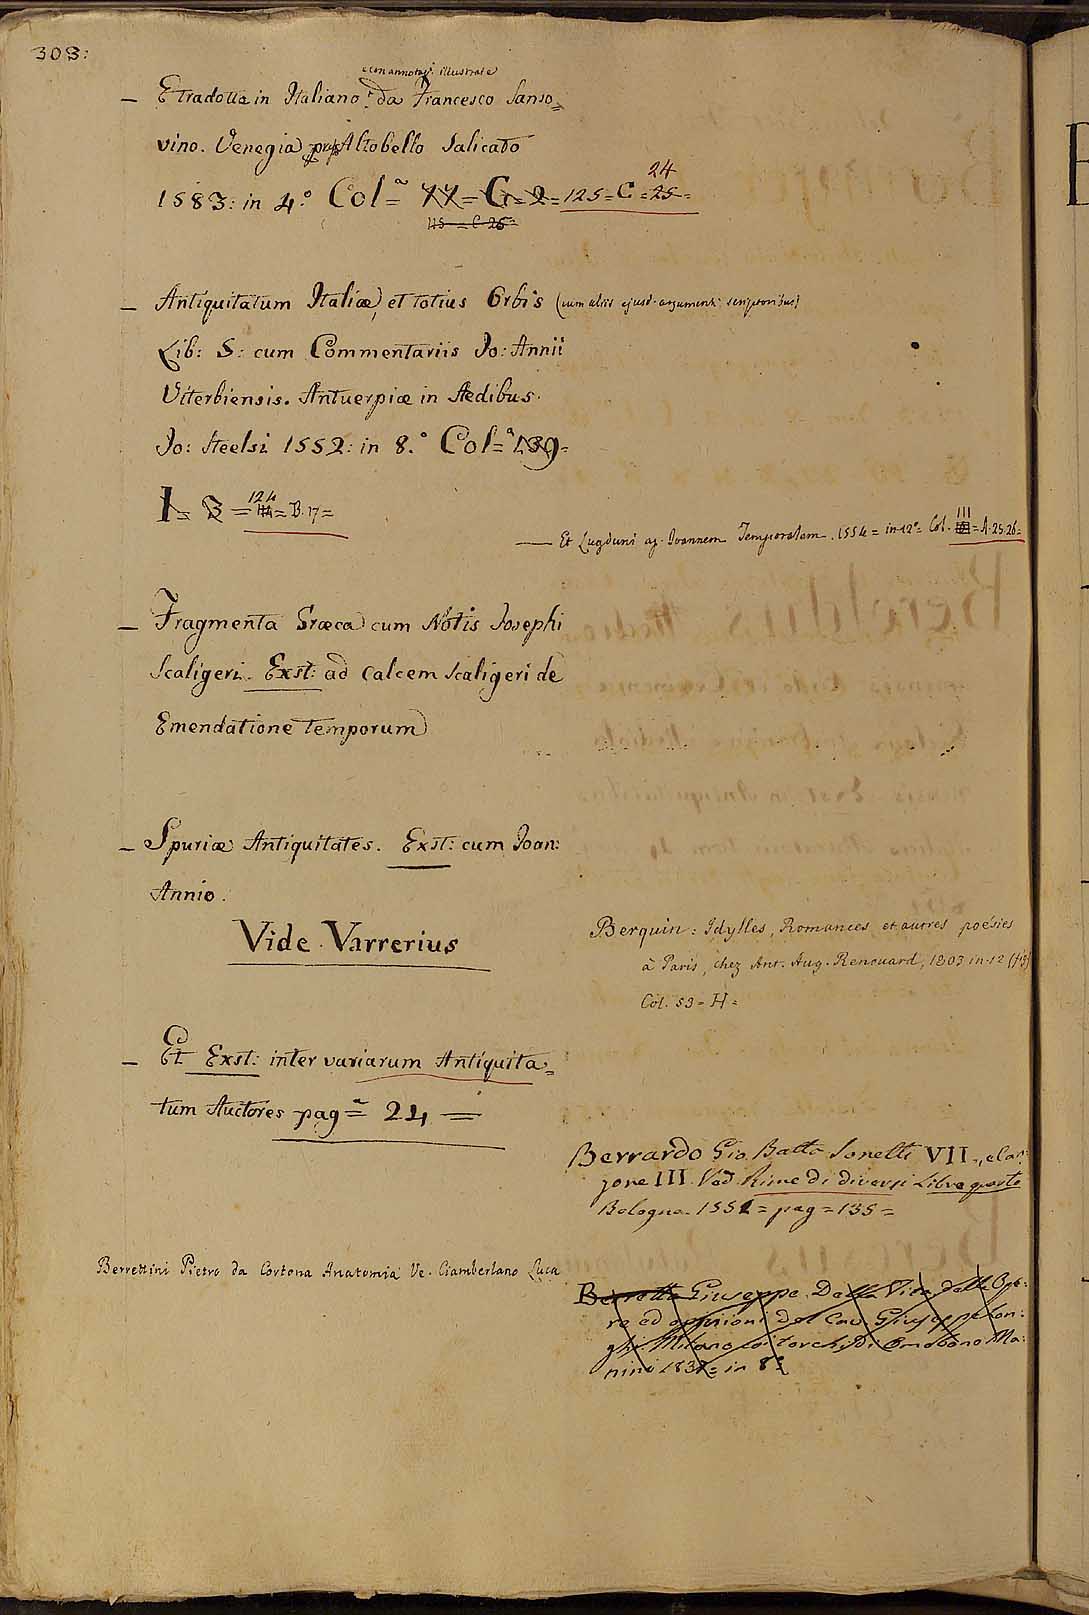 308:
e con annotaz.i illustrate
— E tradotta in Italiano da Francesco Sanso=
vino. Venezia Altobello Salicato
1583: in 4.° Col.a = 77 = G = 2 = 125 = C = 25 =
24
115 = C 26 =
— Antiquitatum Italiæ, et totius Orbis (cum aliis ejusd. argumenti scriptoribus)
Lib: 5: cum Commentariis Jo: Annii
Viterbiensis. Antuerpiæ in Aedibus
Jo: Steelsi 1552: in 8.° Col.a = 139 =
I = 3 = 124 = B. 17 =
— Et Lugduni ap. Joannem Temporalem. 1554 = in 12° = Col. III = A. 25. 26 =
— Fragmenta Græca cum Notis Josephi
Scaligeri. Exst: ad calcem Scaligeri de
Emendatione temporum
— Spuriæ Antiquitates. Exst: cum Joan:
Annio.
Vide Varrerius
Berquin: Idylles, Romances, et autres poésies
à Paris, chez Ant. Aug. Renouard, 1803 in-12 (f.3)
Col. 53 = H =
— Et Exst: inter variarum Antiquita=
tum Auctores pag.a = 24 =
Berrardo Gio. Batta Sonetti VII., e Can:
zone III. Ved. Rime di diversi Libro quarto
Bologna. 1551 = pag = 135 =
Berrettini Pietro da Cortona Anatomia Ve. Ciamberlano Luca
Beretta Giuseppe. Della Vita delle Ope:
re ed opinioni del Cav. Giuseppe Lon:
ghi. Milano coi torchi di Omobono Ma:
nini 1837 = in 8°